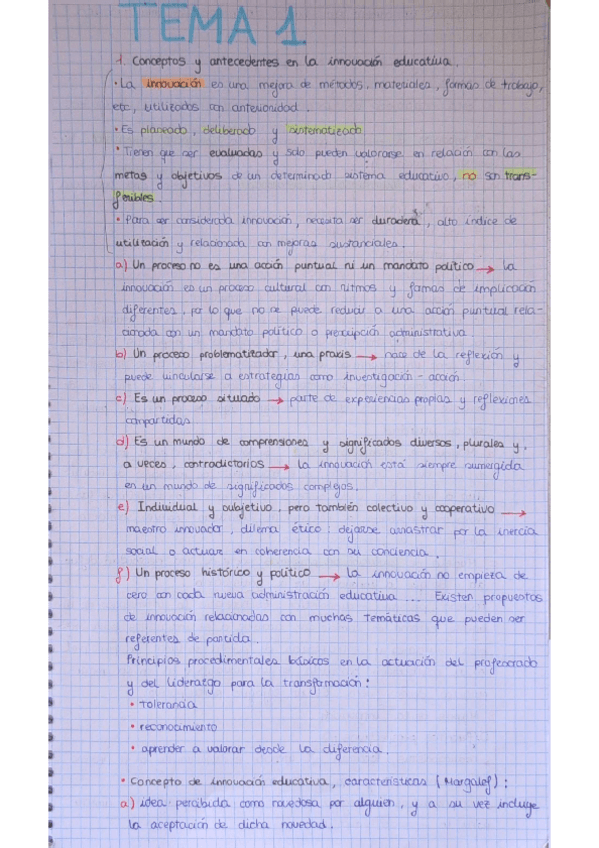 TEMA 1
1. Conceptos y antecedentes en la innovación educativa.
• La innovación es una mejora de métodos, materiales, formas de trabajo,
etc, utilizados con anterioridad.
• Es planeado, deliberado y sistematizado
• Tienen que ser evaluadas y solo pueden valorarse en relación con las
metas y objetivos de un determinado sistema educativo, no son trans-
feribles.
• Para ser considerada innovación, necesita ser duradera, alto índice de
utilización y relacionada con mejoras sustanciales.
a) Un proceso no es una acción puntual ni un mandato político → la
innovación es un proceso cultural con ritmos y formas de implicación
diferentes, por lo que no se puede reducir a una acción puntual rela-
cionada con un mandato político o prescripción administrativa.
b) Un proceso problematizador, una praxis → nace de la reflexión y
puede vincularse a estrategias como investigación - acción.
c) Es un proceso situado → parte de experiencias propias y reflexiones
compartidas.
d) Es un mundo de comprensiones y significados diversos, plurales y,
a veces, contradictorios → la innovación está siempre sumergida
en un mundo de significados complejos.
e) Individual y subjetivo, pero también colectivo y cooperativo →
maestro innovador, dilema ético: dejarse arrastrar por la inercia
social o actuar en coherencia con su conciencia.
f) Un proceso histórico y político → la innovación no empieza de
cero con cada nueva administración educativa... Existen propuestas
de innovación relacionadas con muchas temáticas que pueden ser
referentes de partida.
Principios procedimentales básicos en la actuación del profesorado
y del liderazgo para la transformación:
• tolerancia
• reconocimiento
• aprender a valorar desde la diferencia.
• Concepto de innovación educativa, características (Margalef):
a) idea percibida como novedosa por alguien, y a su vez incluye
la aceptación de dicha novedad.